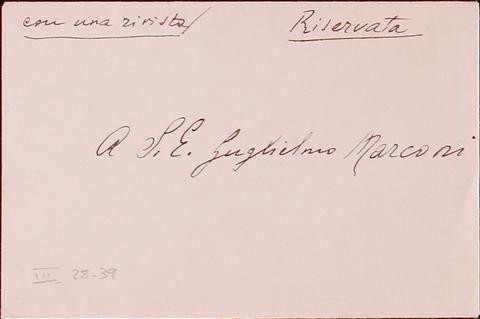 con una rivista/
Riservata
A S. E. Guglielmo Marconi
III 28-39